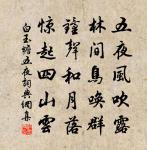 五夜風吹露
林間鳥喚群
鐘聲和月落
驚起四山雲
白玉蟾五夜詞典網集